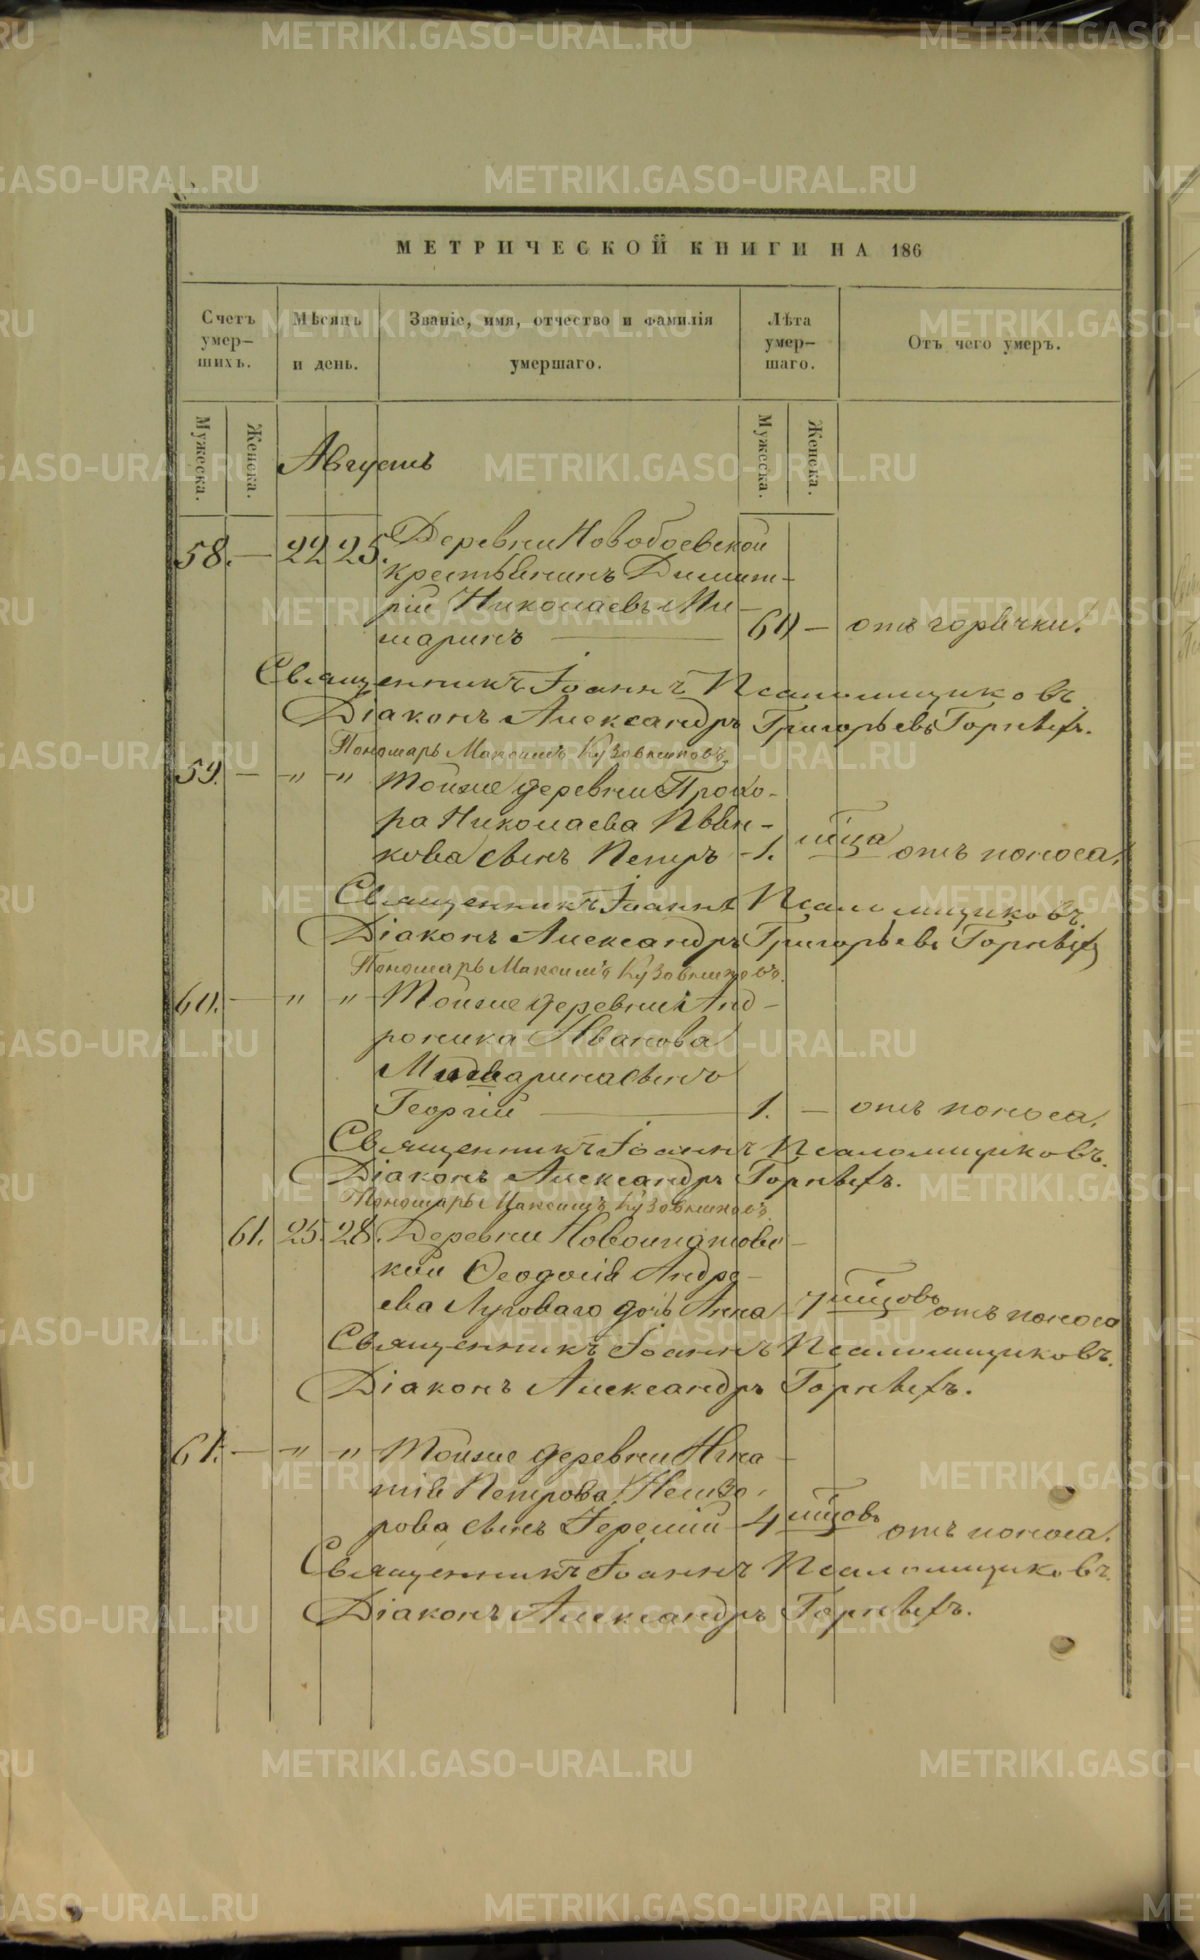 МЕТРИЧЕСКОЙ КНИГИ НА 186
Счетъ умер-шихъ.
Мѣсяцъ и день.
Званіе, имя, отчество и фамилія умершаго.
Лѣта умер-шаго.
Отъ чего умеръ.
Мужеска. Женска.
Мужеска. Женска.
Августъ
58. — 22 25. Деревни Новобоевской
крестьянинъ Димит-
рій Николаевъ Ми-
шаринъ — 60 — отъ горячки.
Священникъ Іоаннъ Псаломщиковъ
Діаконъ Александръ Григорьевъ Горныхъ.
Пономарь Максимъ Кузовниковъ
59. — " " Тойже деревни Прохо-
ра Николаева Пьян-
кова сынъ Петръ — 1. мѣца отъ поноса.
Священникъ Іоаннъ Псаломщиковъ
Діаконъ Александръ Григорьевъ Горныхъ
Пономарь Максимъ Кузовниковъ.
60. — " " Тойже деревни Анд-
роника Иванова
Мишарина сынъ
Георгій — 1. — отъ поноса.
Священникъ Іоаннъ Псаломщиковъ.
Діаконъ Александръ Горныхъ.
Пономарь Максимъ Кузовниковъ.
61. 25. 28. Деревни
кой Ѳеодосія Андре-
ева Луговаго дочь Анна — 7 мѣцовъ отъ поноса
Священникъ Іоаннъ Псаломщиковъ.
Діаконъ Александръ Горныхъ.
61. — " " Тойже деревни Игна
тія Петрова
рова сынъ Іеремій — 4 мѣцовъ отъ поноса.
Священникъ Іоаннъ Псаломщиковъ.
Діаконъ Александръ Горныхъ.
METRIKI.GASO-URAL.RU